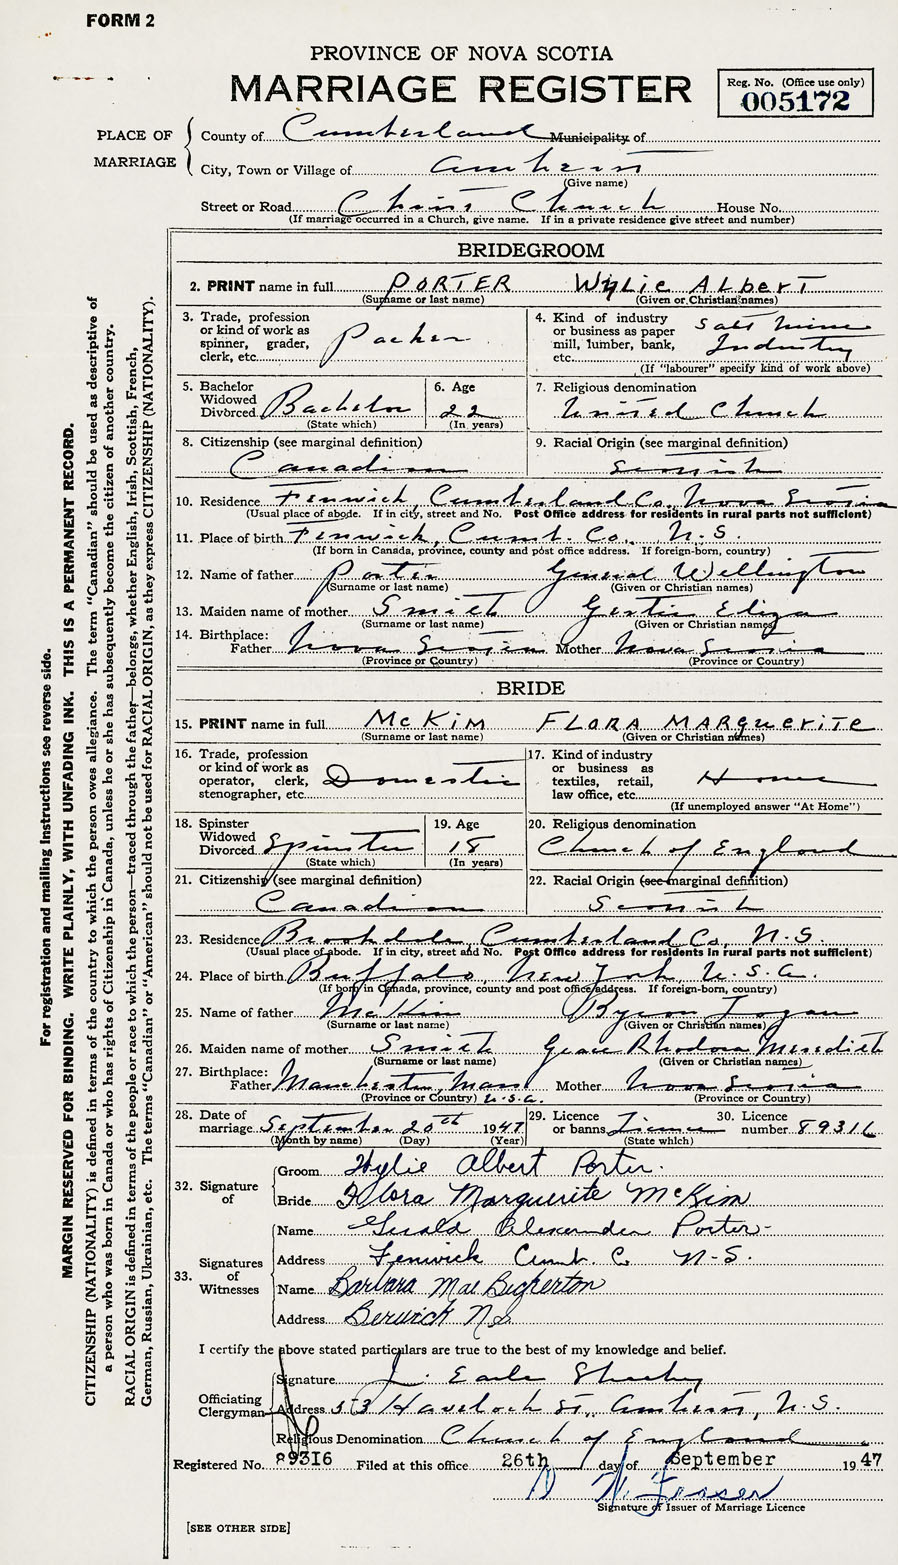 FORM 2
PROVINCE OF NOVA SCOTIA
MARRIAGE REGISTER
Reg. No. (Office use only)
005172
PLACE OF MARRIAGE
County of Cumberland Municipality of
City, Town or Village of Amherst
(Give name)
Street or Road Christ Church House No.
(If marriage occurred in a Church, give name. If in a private residence give street and number)
BRIDEGROOM
2. PRINT name in full PORTER Wylie Albert
(Surname or last name) (Given or Christian names)
3. Trade, profession or kind of work as spinner, grader, clerk, etc. Packer
4. Kind of industry or business as paper mill, lumber, bank, etc. Salt Mine Industry
(If "labourer" specify kind of work above)
5. Bachelor Widowed Divorced Bachelor
(State which)
6. Age 22
(In years)
7. Religious denomination
United Church
8. Citizenship (see marginal definition)
Canadian
9. Racial Origin (see marginal definition)
Scottish
10. Residence Fenwick, Cumberland Co., Nova Scotia
(Usual place of abode. If in city, street and No. Post Office address for residents in rural parts not sufficient)
11. Place of birth Fenwick, Cumb. Co., N.S.
(If born in Canada, province, county and post office address. If foreign-born, country)
12. Name of father Porter General Wellington
(Surname or last name) (Given or Christian names)
13. Maiden name of mother Smith Gertie Eliza
(Surname or last name) (Given or Christian names)
14. Birthplace: Father Nova Scotia Mother Nova Scotia
(Province or Country) (Province or Country)
BRIDE
15. PRINT name in full McKim FLORA MARguerite
(Surname or last name) (Given or Christian names)
16. Trade, profession or kind of work as operator, clerk, stenographer, etc. Domestic
17. Kind of industry or business as textiles, retail, law office, etc. Home
(If unemployed answer "At Home")
18. Spinster Widowed Divorced Spinster
(State which)
19. Age 18
(In years)
20. Religious denomination
Church of England
21. Citizenship (see marginal definition)
Canadian
22. Racial Origin (see marginal definition)
Scottish
23. Residence Brookdale, Cumberland Co, N.S.
(Usual place of abode. If in city, street and No. Post Office address for residents in rural parts not sufficient)
24. Place of birth Buffalo, New York, U.S.A.
(If born in Canada, province, county and post office address. If foreign-born, country)
25. Name of father McKim Byron Logan
(Surname or last name) (Given or Christian names)
26. Maiden name of mother Smith Grace Rhodora Meredith
(Surname or last name) (Given or Christian names)
27. Birthplace: Father Manchester, Mass Mother Nova Scotia
(Province or Country) U.S.A. (Province or Country)
28. Date of marriage September 20th 1947
(Month by name) (Day) (Year)
29. Licence or banns Licence
(State which)
30. Licence number 89316
32. Signature of
Groom Wylie Albert Porter.
Bride Flora Marguerite McKim
33. Signatures of Witnesses
Name Gerald Alexander Porter
Address Fenwick Cumb. Co N.S.
Name Barbara Mae Bickerton
Address Berwick NS
I certify the above stated particulars are true to the best of my knowledge and belief.
Officiating Clergyman
Signature J. Earle
Address 53 Havelock St., Amherst, N.S.
Religious Denomination Church of England
Registered No. 89316 Filed at this office 26th day of September 1947
D W. Fraser
Signature of Issuer of Marriage Licence
[SEE OTHER SIDE]
For registration and mailing instructions see reverse side.
MARGIN RESERVED FOR BINDING. WRITE PLAINLY, WITH UNFADING INK. THIS IS A PERMANENT RECORD.
CITIZENSHIP (NATIONALITY) is defined in terms of the country to which the person owes allegiance. The term "Canadian" should be used as descriptive of
a person who was born in Canada or who has rights of Citizenship in Canada, unless he or she has subsequently become the citizen of another country.
RACIAL ORIGIN is defined in terms of the people or race to which the person—traced through the father—belongs, whether English, Irish, Scottish, French,
German, Russian, Ukrainian, etc. The terms "Canadian" or "American" should not be used for RACIAL ORIGIN, as they express CITIZENSHIP (NATIONALITY).